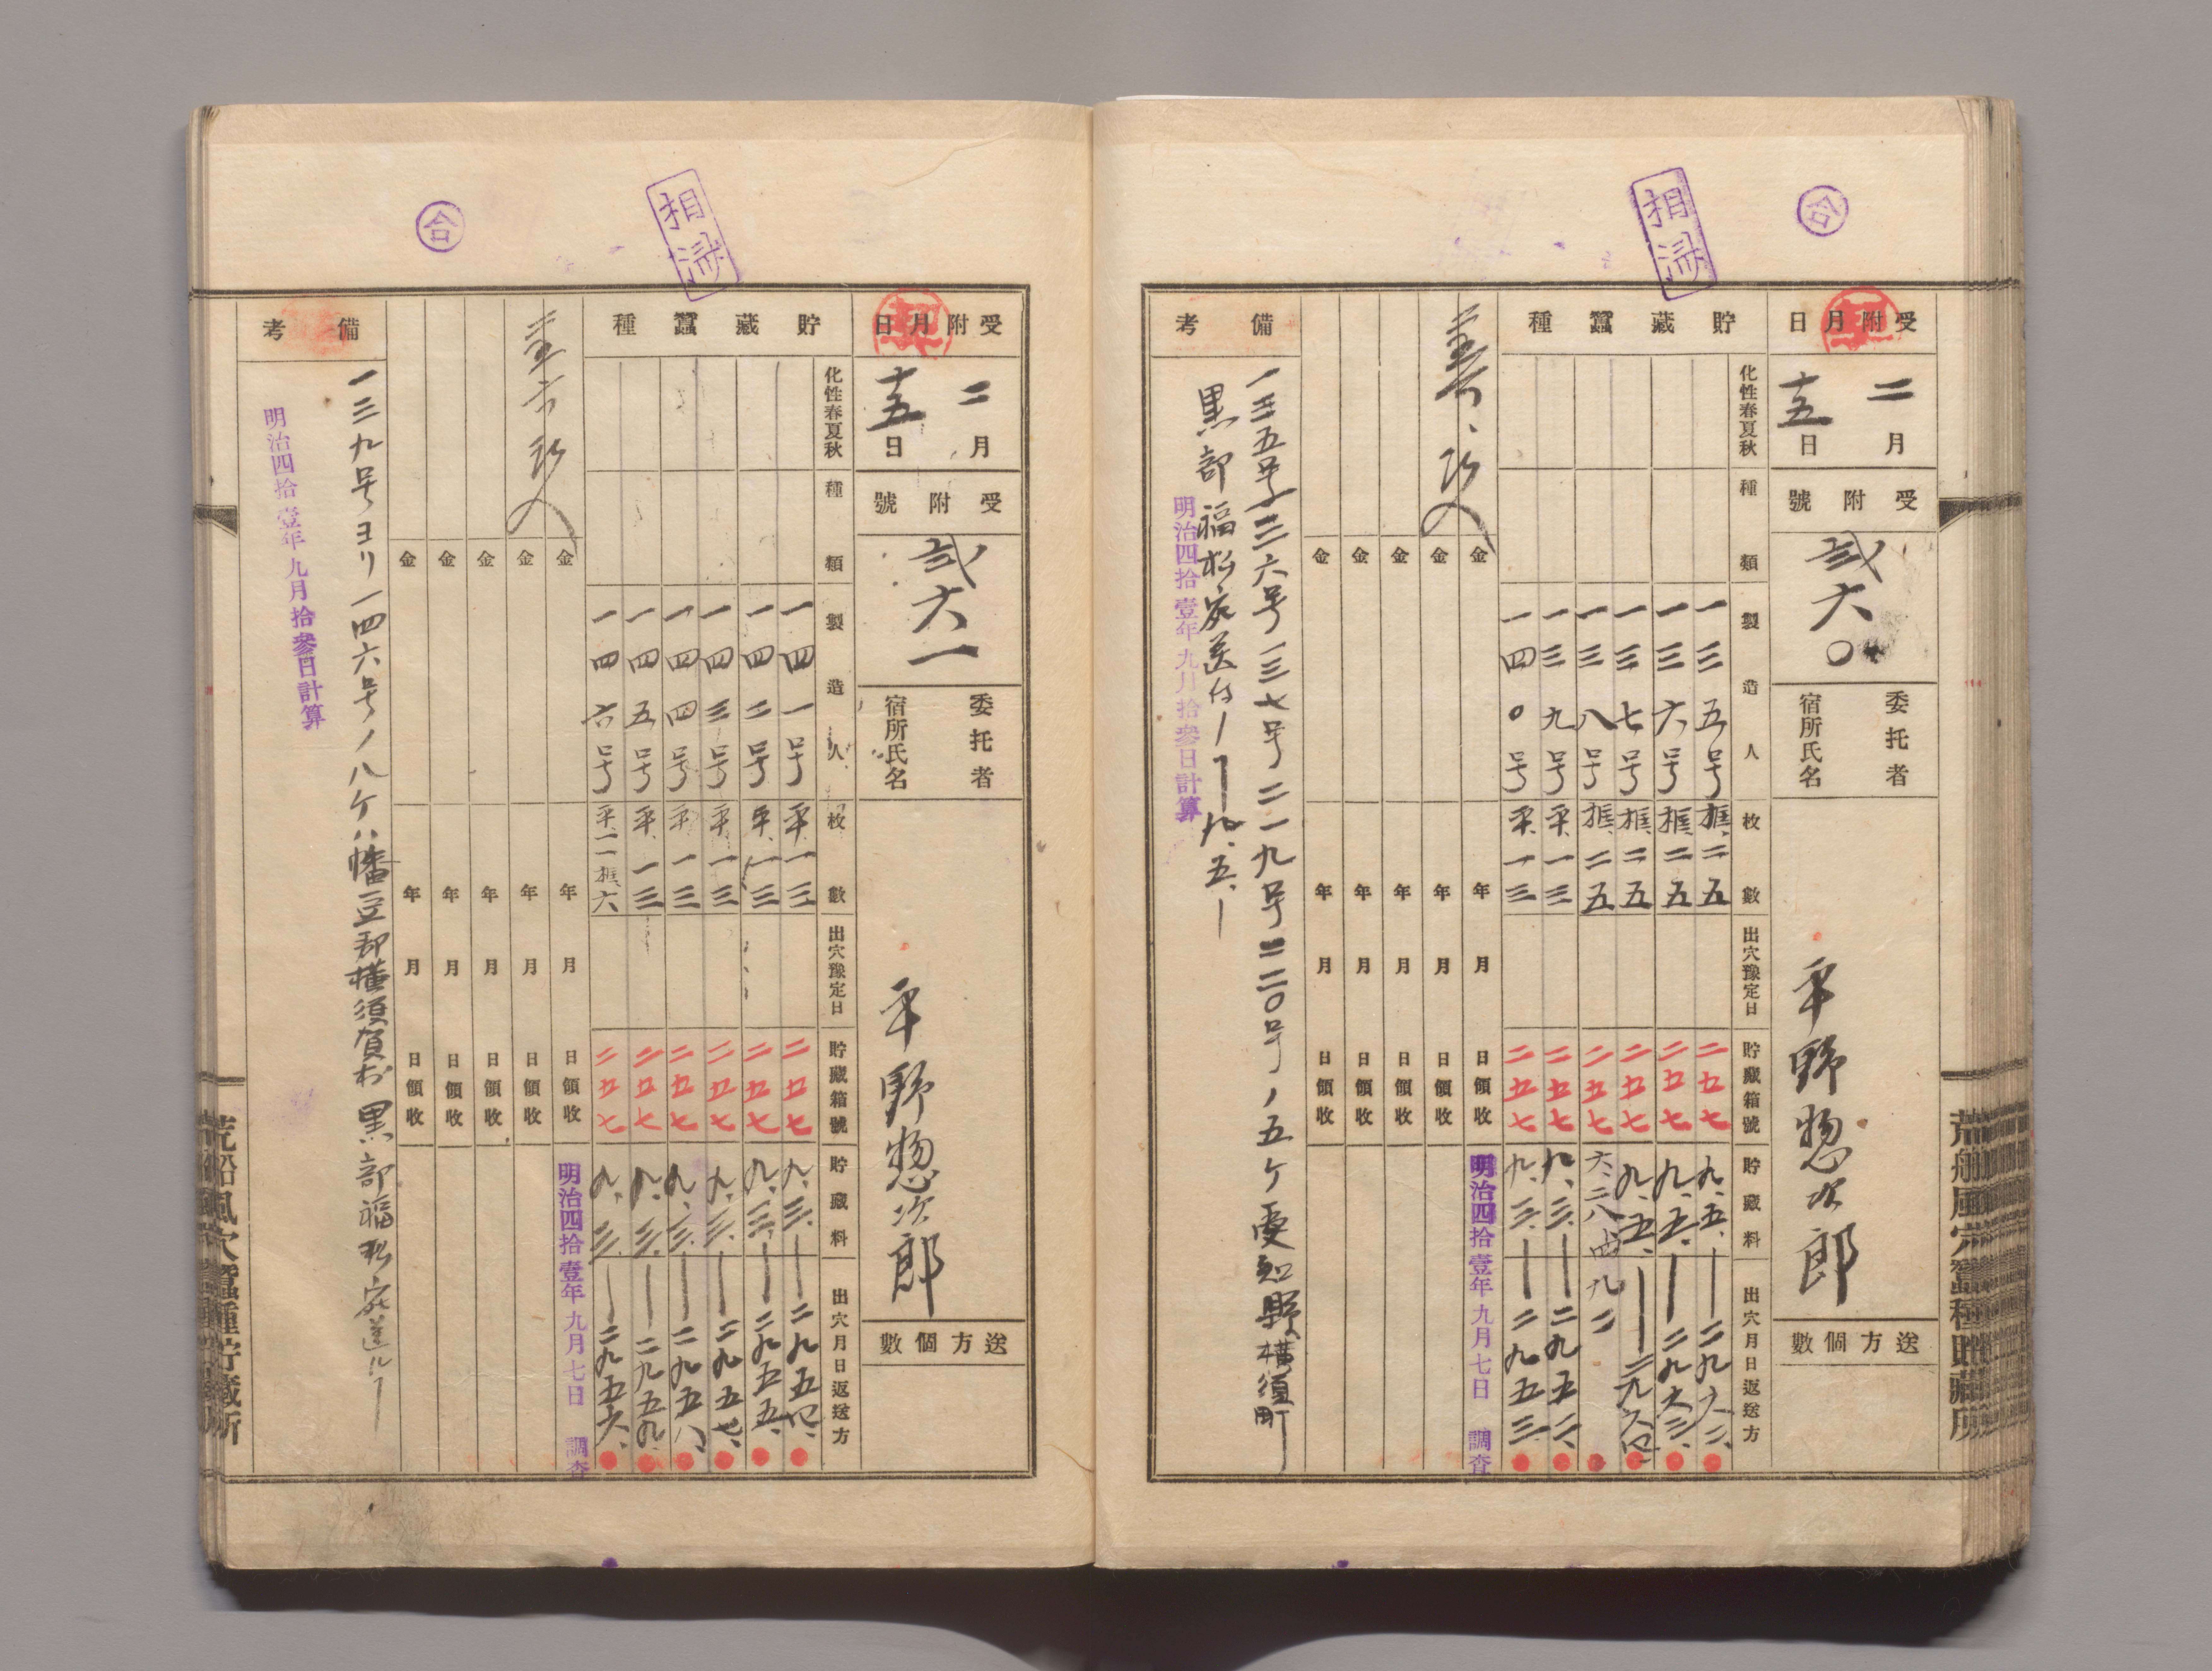 合
相済
受附月日
二月
十五日
受附號
弐六〇
委托者
宿所氏名
平野惣次郎
送方個數
貯藏蠶種
化性春夏秋
種類
製造人
枚數
出穴豫定日
貯藏箱號
貯藏料
出穴月日返送方
一三五号 框、二五 二五七 九、五、— 二九六二、
一三六号 框、二五 二五七 九、五、— 二九六三、
一三七号 框、二五 二五七 九、五、— 二九六四、
一三八号 框、二五 二五七 六、二八
一三九号 平、一三 二五七 九、三、— 二九五二、
一四〇号 平、一三 二五七 九、三、— 二九五三、
明治四拾壹年九月七日 調査
金 年 月 日領收
金 年 月 日領收
金 年 月 日領收
金 年 月 日領收
金 年 月 日領收
備考
一三五号 一三六号 一三七号 二一九号 二二〇号ノ五ケ 愛知縣横須町
黒部福松宛送付ノ 九、五、
明治四拾壹年九月拾參日計算
荒船風穴蠶種貯藏所
合
相済
受附月日
二月
十五日
受附號
弐六一
委托者
宿所氏名
平野惣次郎
送方個數
貯藏蠶種
化性春夏秋
種類
製造人
枚數
出穴豫定日
貯藏箱號
貯藏料
出穴月日返送方
一四一号 平、一三 二五七 九、三、— 二九五四、
一四二号 平、一三 二五七 九、三、— 二九五五、
一四三号 平、一三 二五七 九、三、— 二九五七、
一四四号 平、一三 二五七 九、三、— 二九五八、
一四五号 平、一三 二五七 九、三、— 二九五九、
一四六号 平、一 框、六 二五七 九、三、— 二九五六、
明治四拾壹年九月七日 調査
金 年 月 日領收
金 年 月 日領收
金 年 月 日領收
金 年 月 日領收
金 年 月 日領收
備考
一三九号ヨリ一四六号ノ八ケハ幡豆郡横須賀村 黒部福松宛送ル
明治四拾壹年九月拾參日計算
荒船風穴蠶種貯藏所